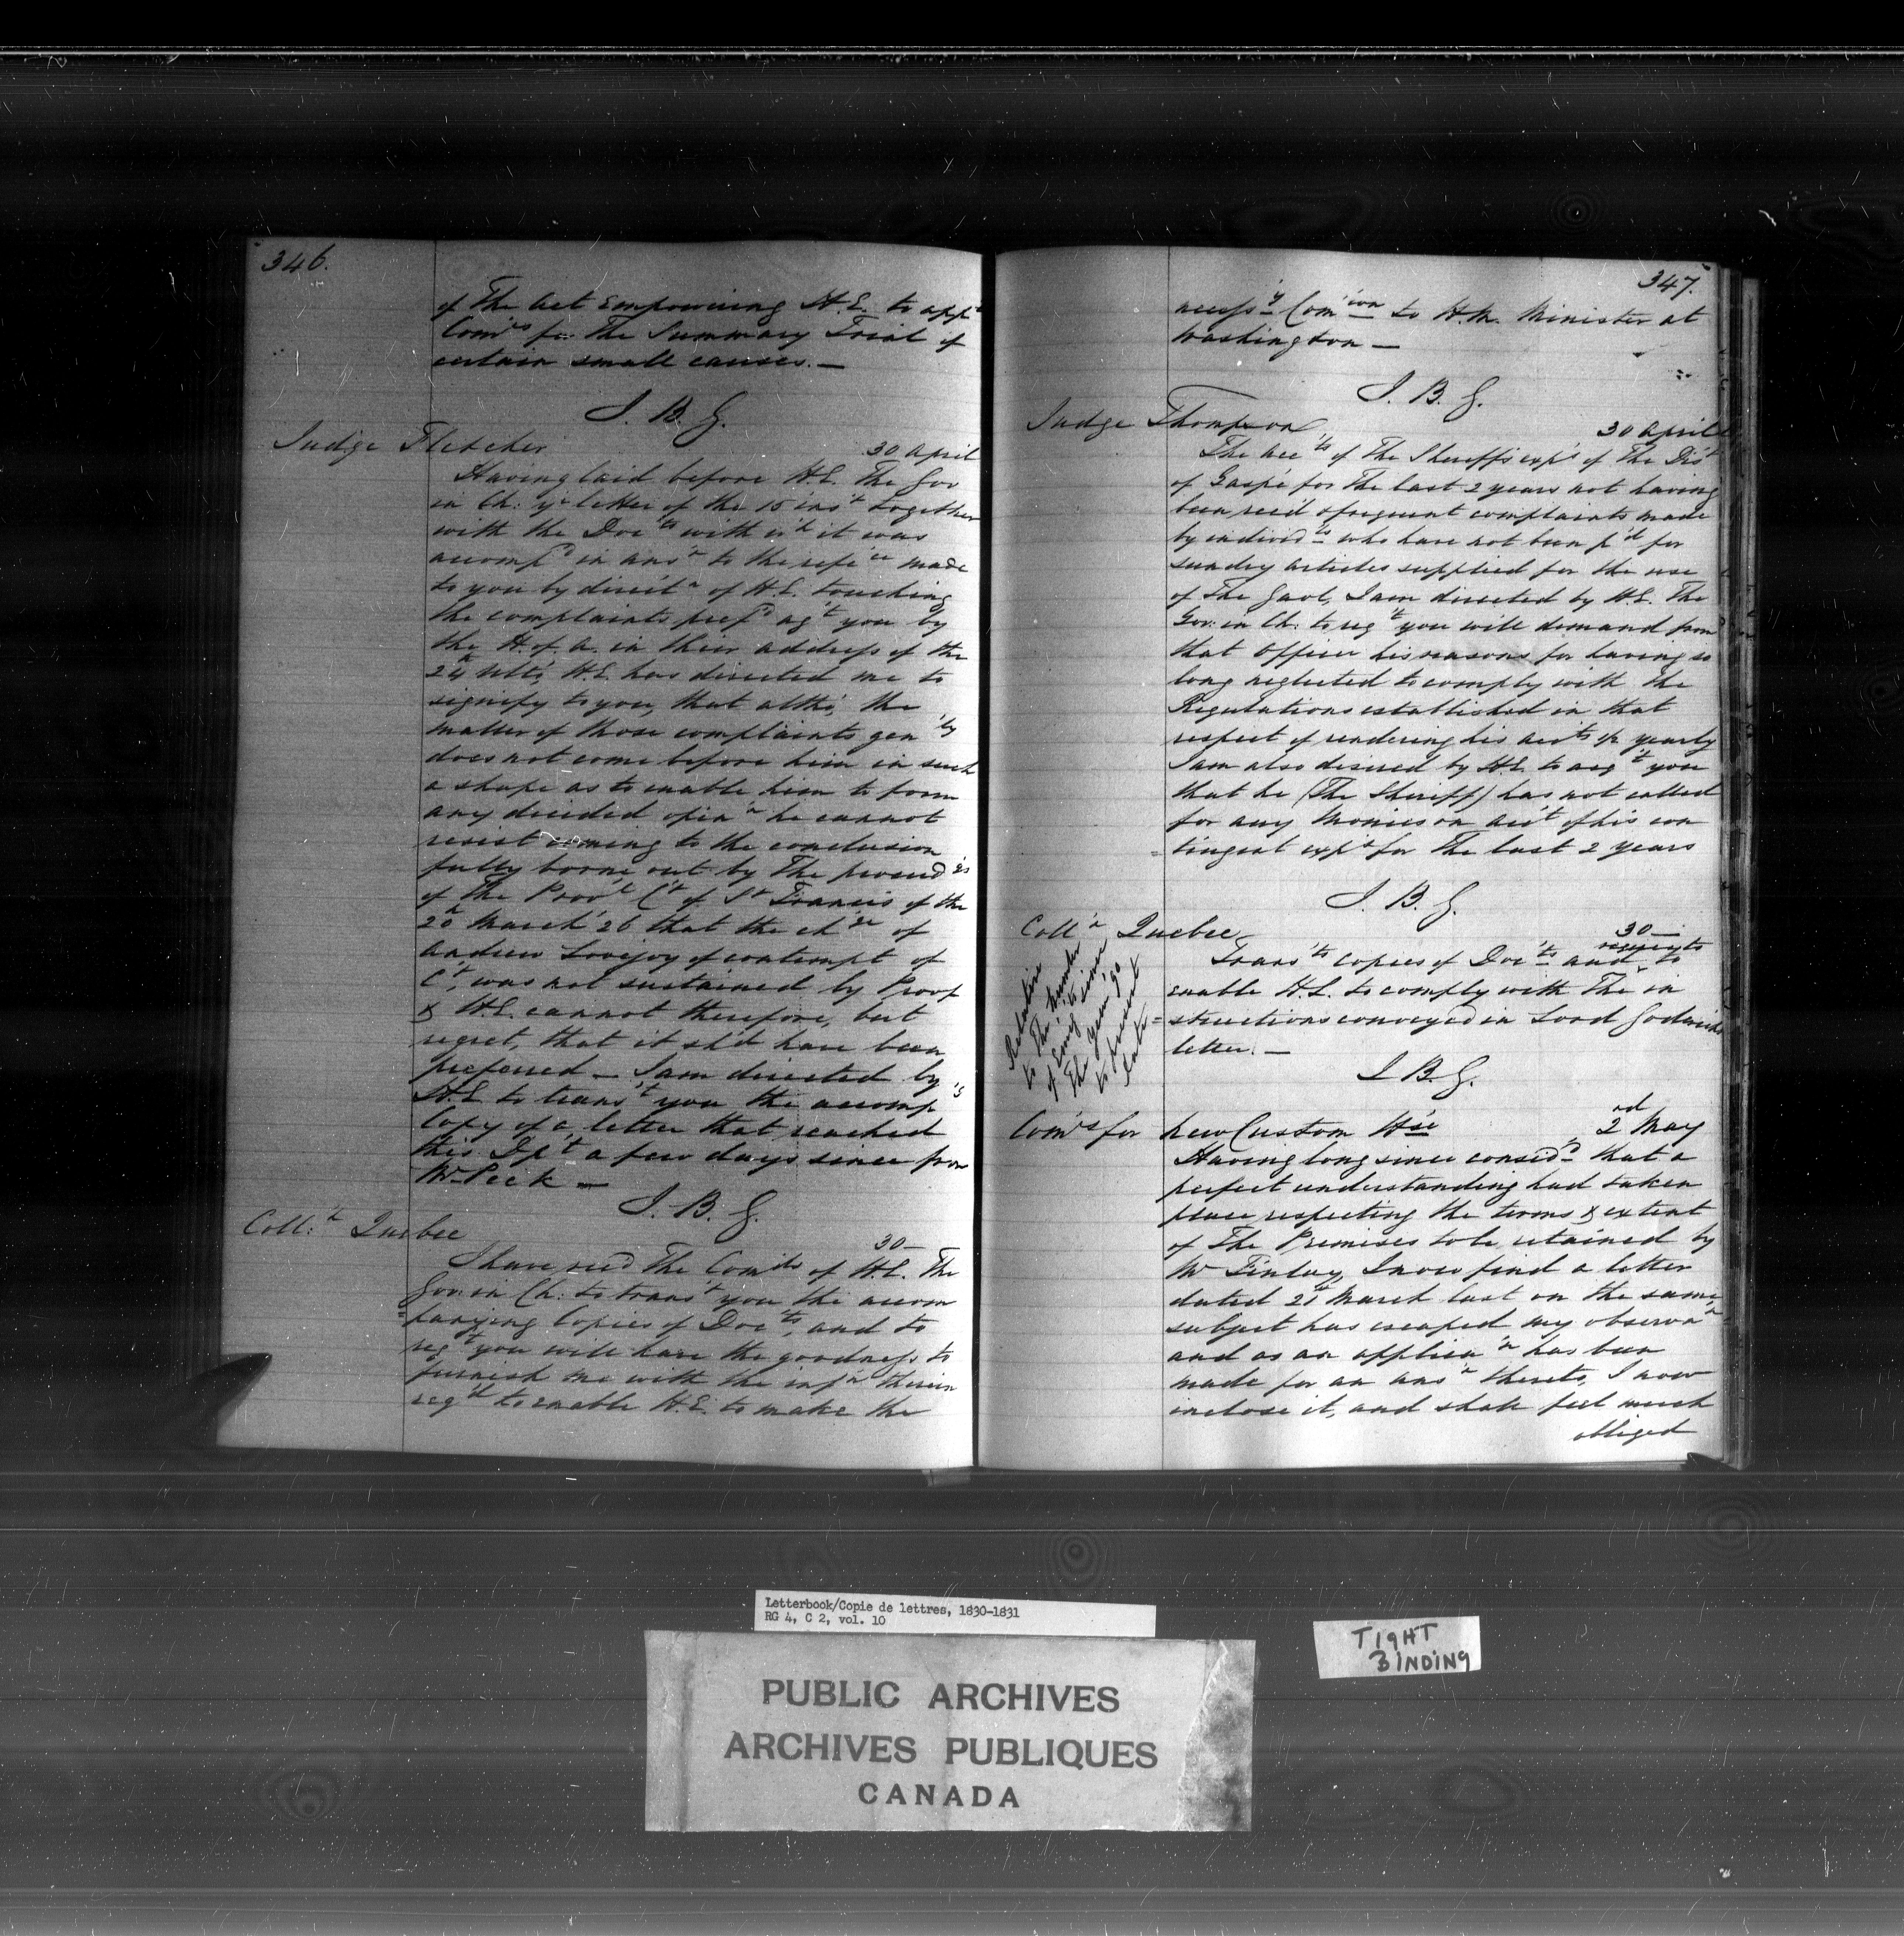 346.
of The Act Empowering H.E. to app't
Com'rs for The Summary Trial of
certain small causes. —
J. B. G.
Judge Fletcher
30 April
Having laid before H.E. The Gov
in Ch: y'r letter of the 15 ins't together
with the Doc'ts with w'h it was
accomp'd in ans'r to the refe'ce made
to you by direct'n of H.E. touching
the complaints pref'd ag't you by
the H. of A. in their address of the
24th Ulto, H.E. has directed me to
signify to you, that altho' the
matter of those complaints gen'ly
does not come before him in such
a shape as to enable him to form
any decided opin'n he cannot
resist coming to the conclusion
fully borne out by The proceed'gs
of The Prov'l C't of St Francis of the
20th March '26 that the ch'ge of
Andrew Lovejoy of contempt of
C't, was not sustained by Proof
& H.E. cannot therefore, but
regret, that it sh'd have been
preferred — I am directed by
H.E. to trans't you the accomp'g
Copy of a letter that reached
this Dp't a few days since from
Mr Peck —
J. B. G.
Coll:'r Quebec
30 —
I have rec'd The Com'ds of H.E. The
Gov: in Ch: to trans't you the accom
=panying Copies of Doc'ts, and to
req't you will have the goodness to
furnish me with the inf'n therein
req'd to enable H.E. to make the
347.
necess'y Com'ion to H.M. Minister at
Washington —
J. B. G.
Judge Thompson
30 April
The Acc'ts of The Sheriff's exp's of The Dis't
of Gaspé for The last 2 years not having
been rec'd & frequent complaints made
by individ'ls who have not been p'd for
sundry articles supplied for the use
of The Gaol, I am directed by H.E. The
Gov: in Ch: to req't you will demand from
that Officer his reasons for having so
long neglected to comply with the
Regulations established in that
respect of rendering his acc'ts ½ yearly
I am also desired by H.E. to acq't you
that he (The Sheriff) has not called
for any Monies on acc't of his con
=tingent exp's for The last 2 years
J. B. G.
Coll'r Quebec
30 —
Relative
to The number
of Emig'ts since
The year '90
to present
date
Trans'ts copies of Doc'ts and requests to
enable H.E. to comply with The in
=structions conveyed in Lord Goderichs
letter. —
J B. G.
Com'rs for new Custom H'se
2nd May
Having long since consid'd that a
perfect understanding had taken
place respecting the terms & extent
of The Premises to be retained by
Mr Finlay, I now find a letter
dated 21st March last on the same
subject has escaped my observa'n
and as an applica'n has been
made for an ans'r thereto, I now
enclose it, and shall feel much
obliged
Letterbook/Copie de lettres, 1830-1831
RG 4, C 2, vol. 10
TIGHT
BINDING
PUBLIC ARCHIVES
ARCHIVES PUBLIQUES
CANADA